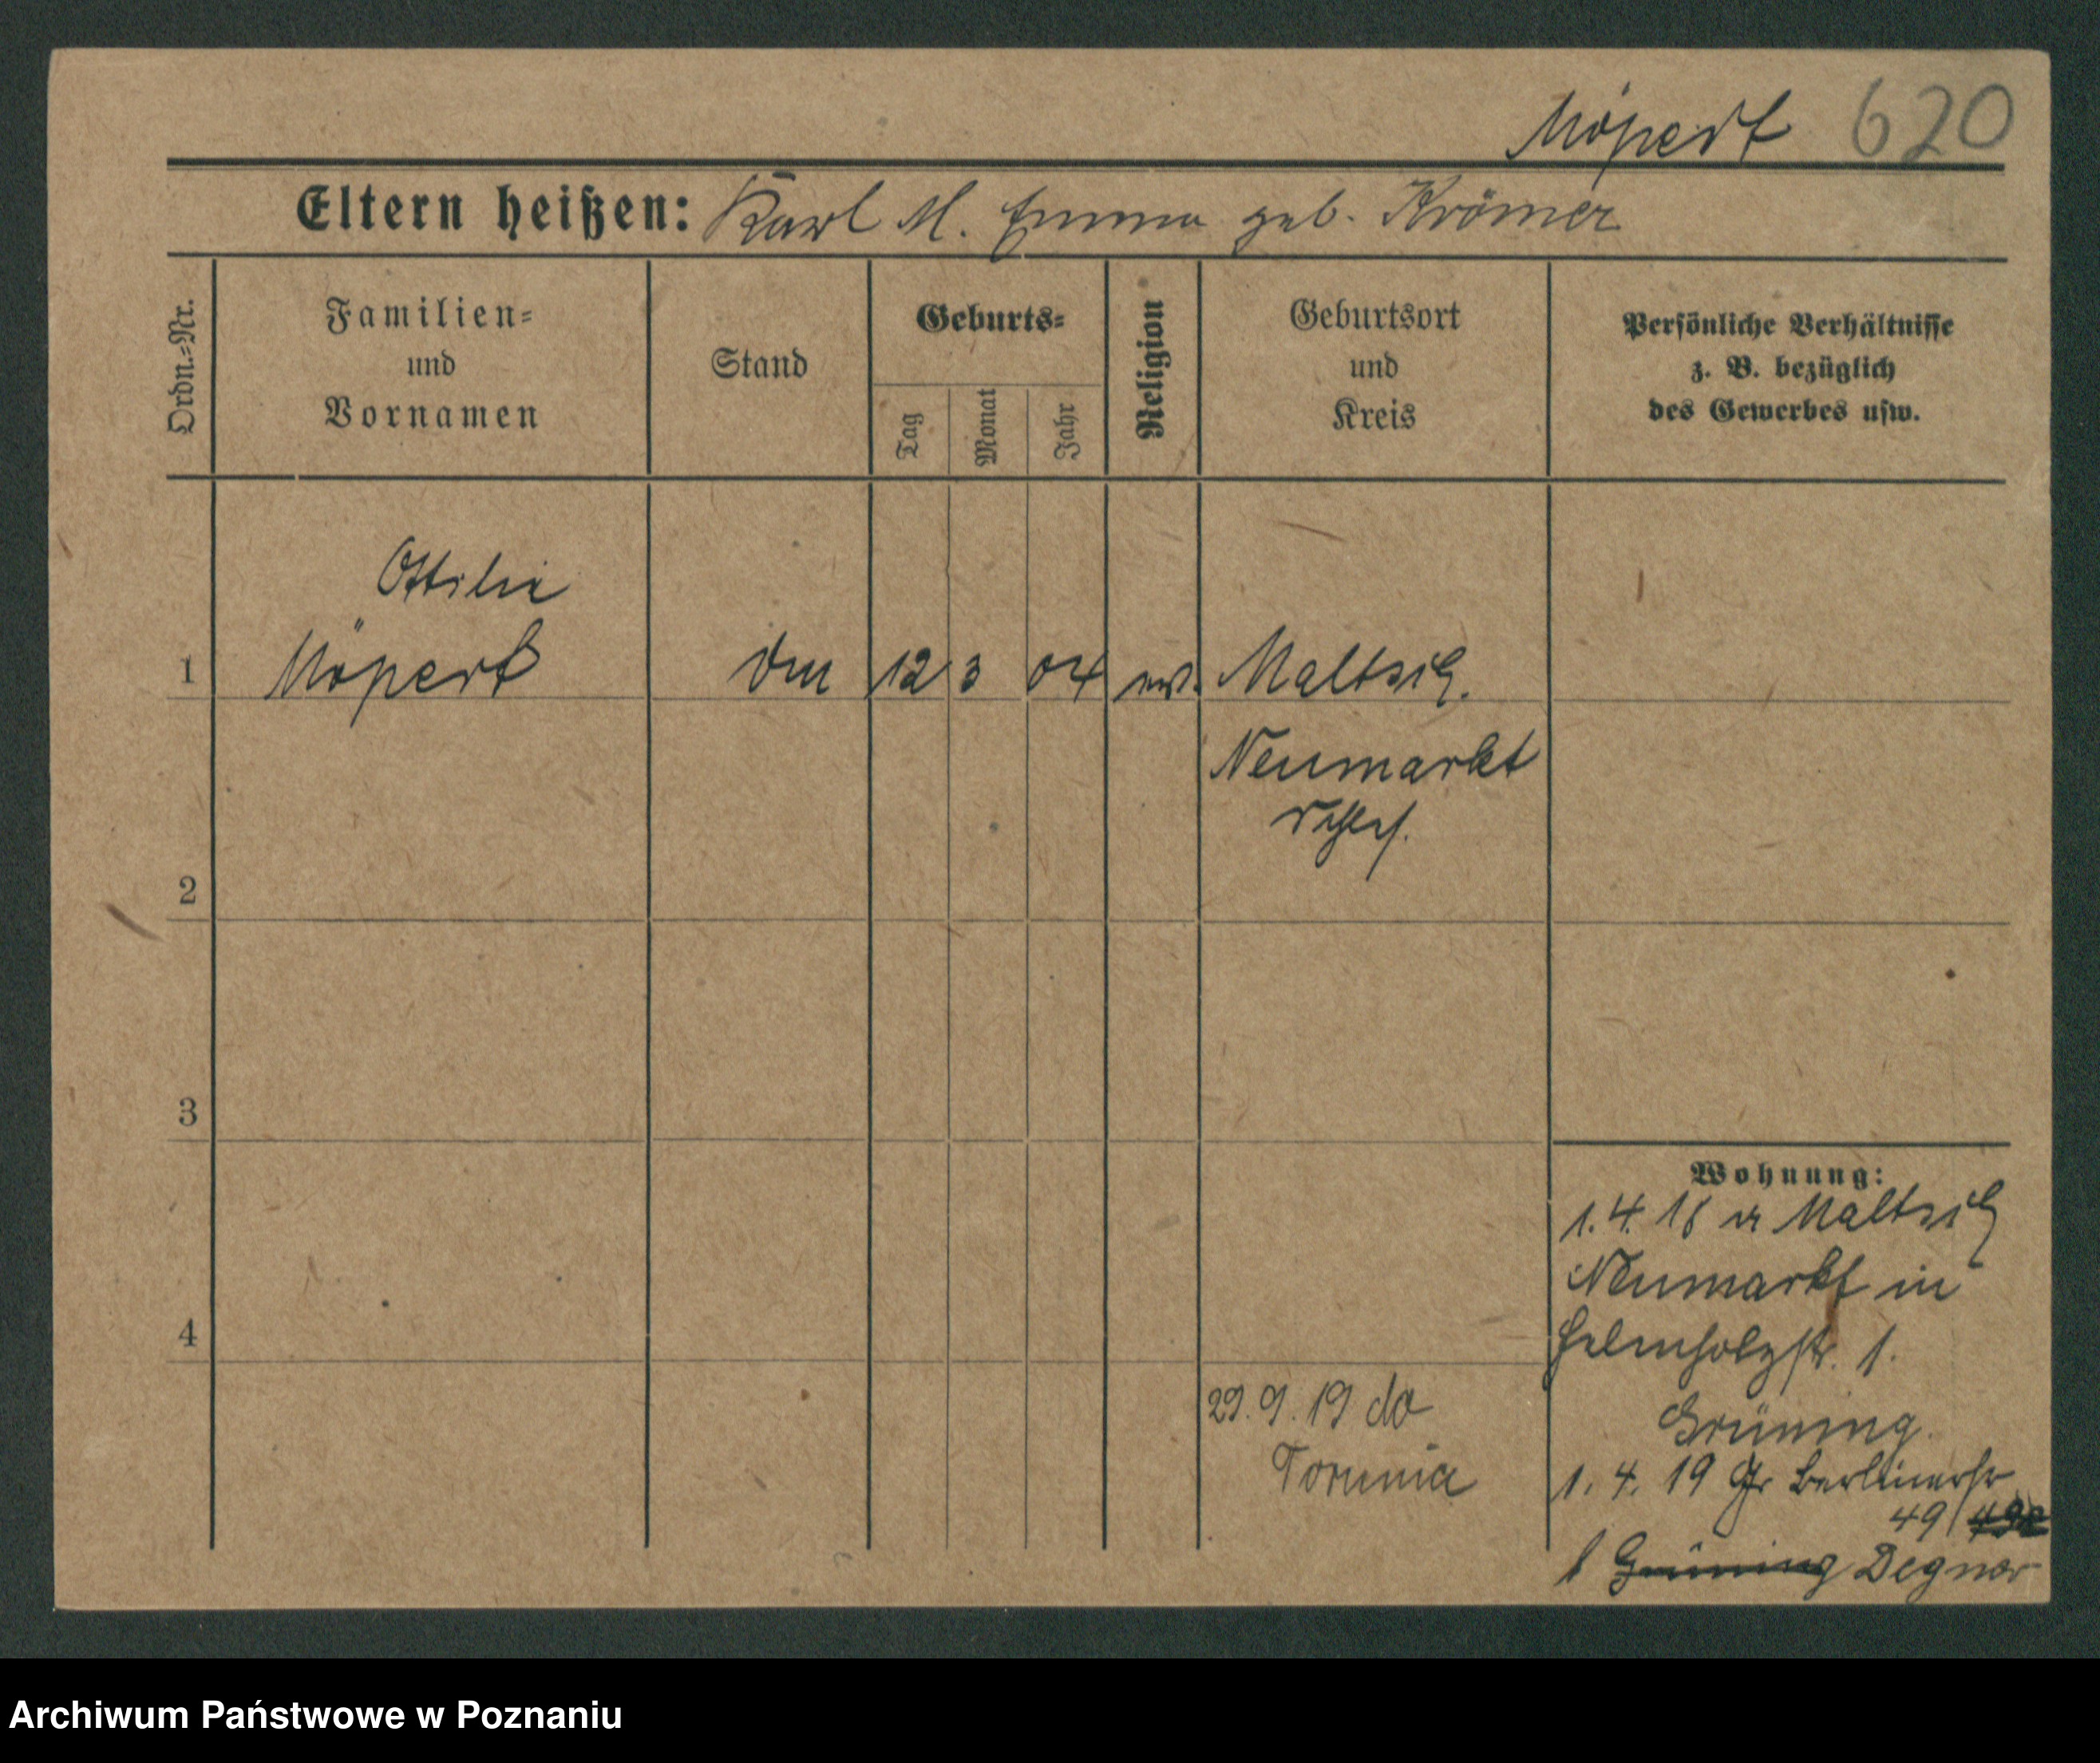 Möpert 620
Eltern heißen: Karl M. Emma geb. Krömer
Ordn.=Nr.
Familien=
und
Vornamen
Stand
Geburts=
Tag
Monat
Jahr
Religion
Geburtsort
und
Kreis
Persönliche Verhältnisse
z. B. bezüglich
des Gewerbes usw.
Ottilie
1 Möpert 12 3 04 Maltsch.
Neumarkt
Schles.
2
3
4
Wohnung:
1.4.18 Maltsch
Neumarkt in
Helmholzstr. 1.
Grüning
1. 4. 19 Gr Berlinerstr
49
Grüning Degner
29. 9. 19 do
Torunia
Archiwum Państwowe w Poznaniu